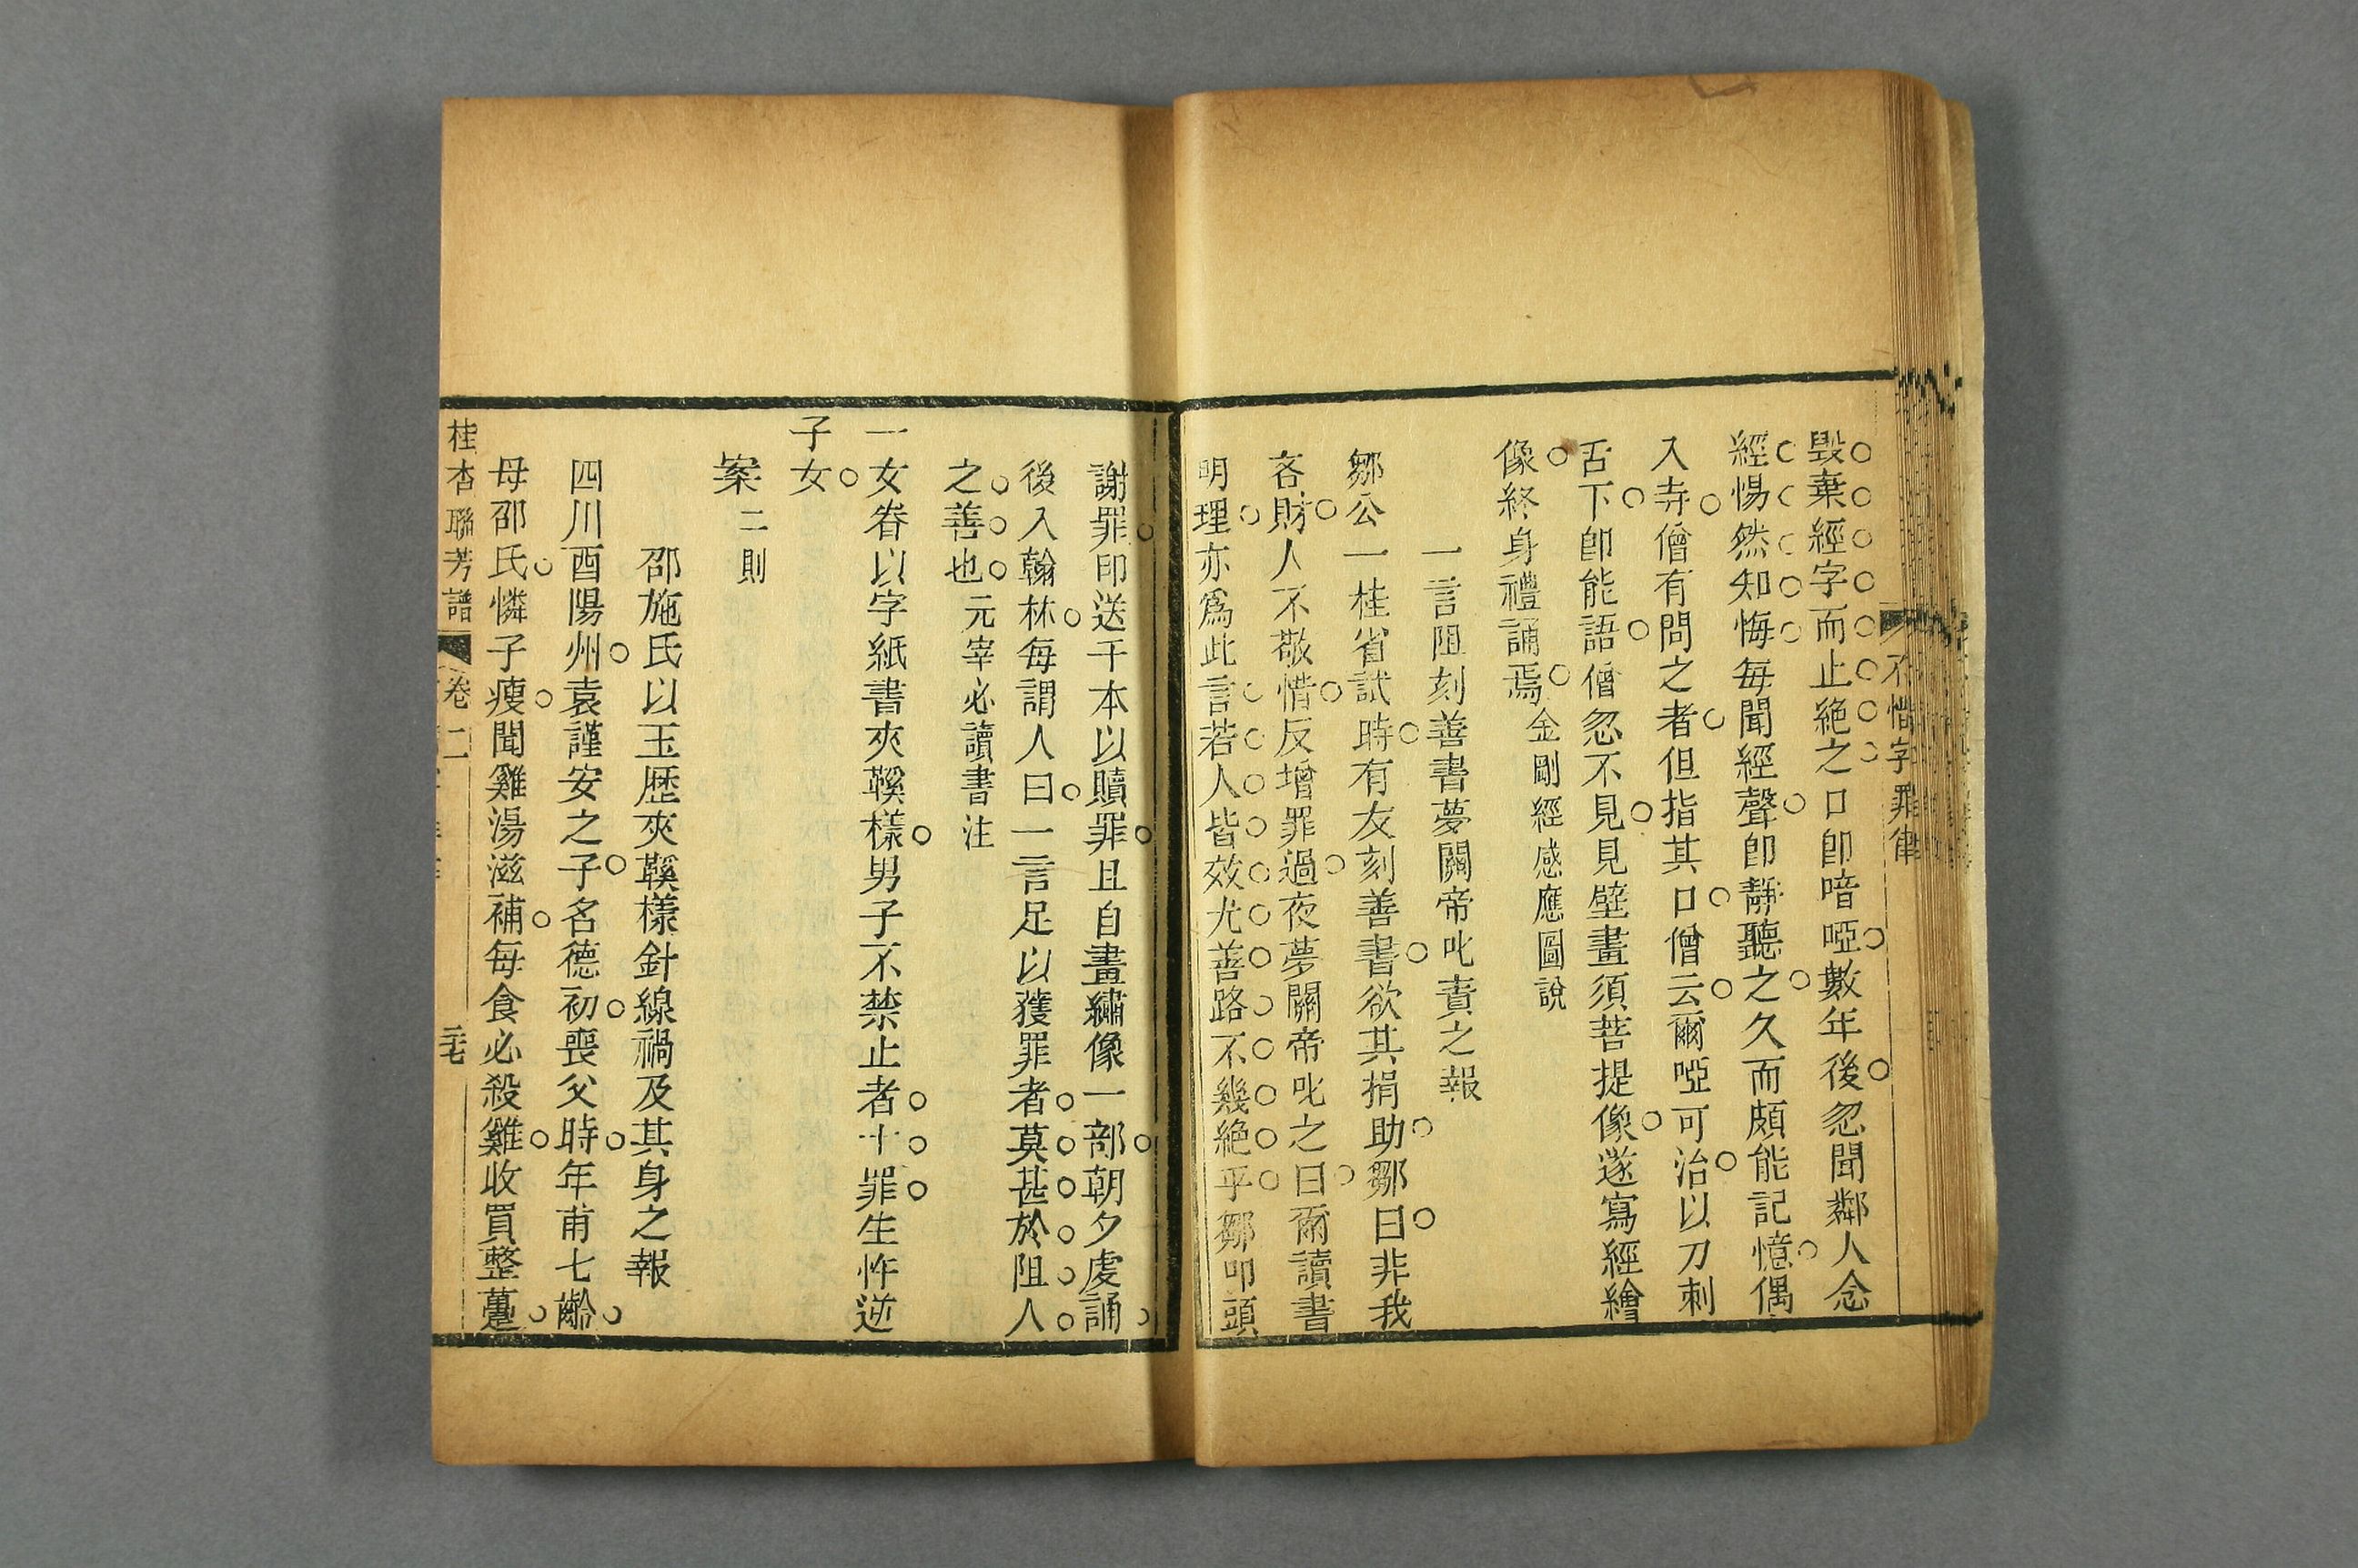 不惜字罪律
毀棄經字而止絕之口卽喑啞數年後忽聞鄰人念
經惕然知悔每聞經聲卽靜聽之久而頗能記憶偶
入寺僧有問之者但指其口僧云爾啞可治以刀刺
舌下卽能語僧忽不見見壁畫須菩提像遂寫經繪
像終身禮誦焉金剛經感應圖說
一言阻刻善書夢關帝叱責之報
鄒公一桂省試時有友刻善書欲其捐助鄒曰非我
吝財人不敬惜反增罪過夜夢關帝叱之曰爾讀書
明理亦爲此言若人皆效尤善路不幾絕乎鄒叩頭
謝罪印送千本以贖罪且自畫繡像一部朝夕虔誦
後入翰林每謂人曰一言足以獲罪者莫甚於阻人
之善也元宰必讀書注
一女眷以字紙書夾鞵樣男子不禁止者十罪生忤逆
子女
案二則
邵施氏以玉歷夾鞵樣針線禍及其身之報
四川酉陽州袁謹安之子名德初喪父時年甫七齡
母邵氏憐子瘦聞雞湯滋補每食必殺雞收買整躉
桂杏聯芳譜 卷二 二七